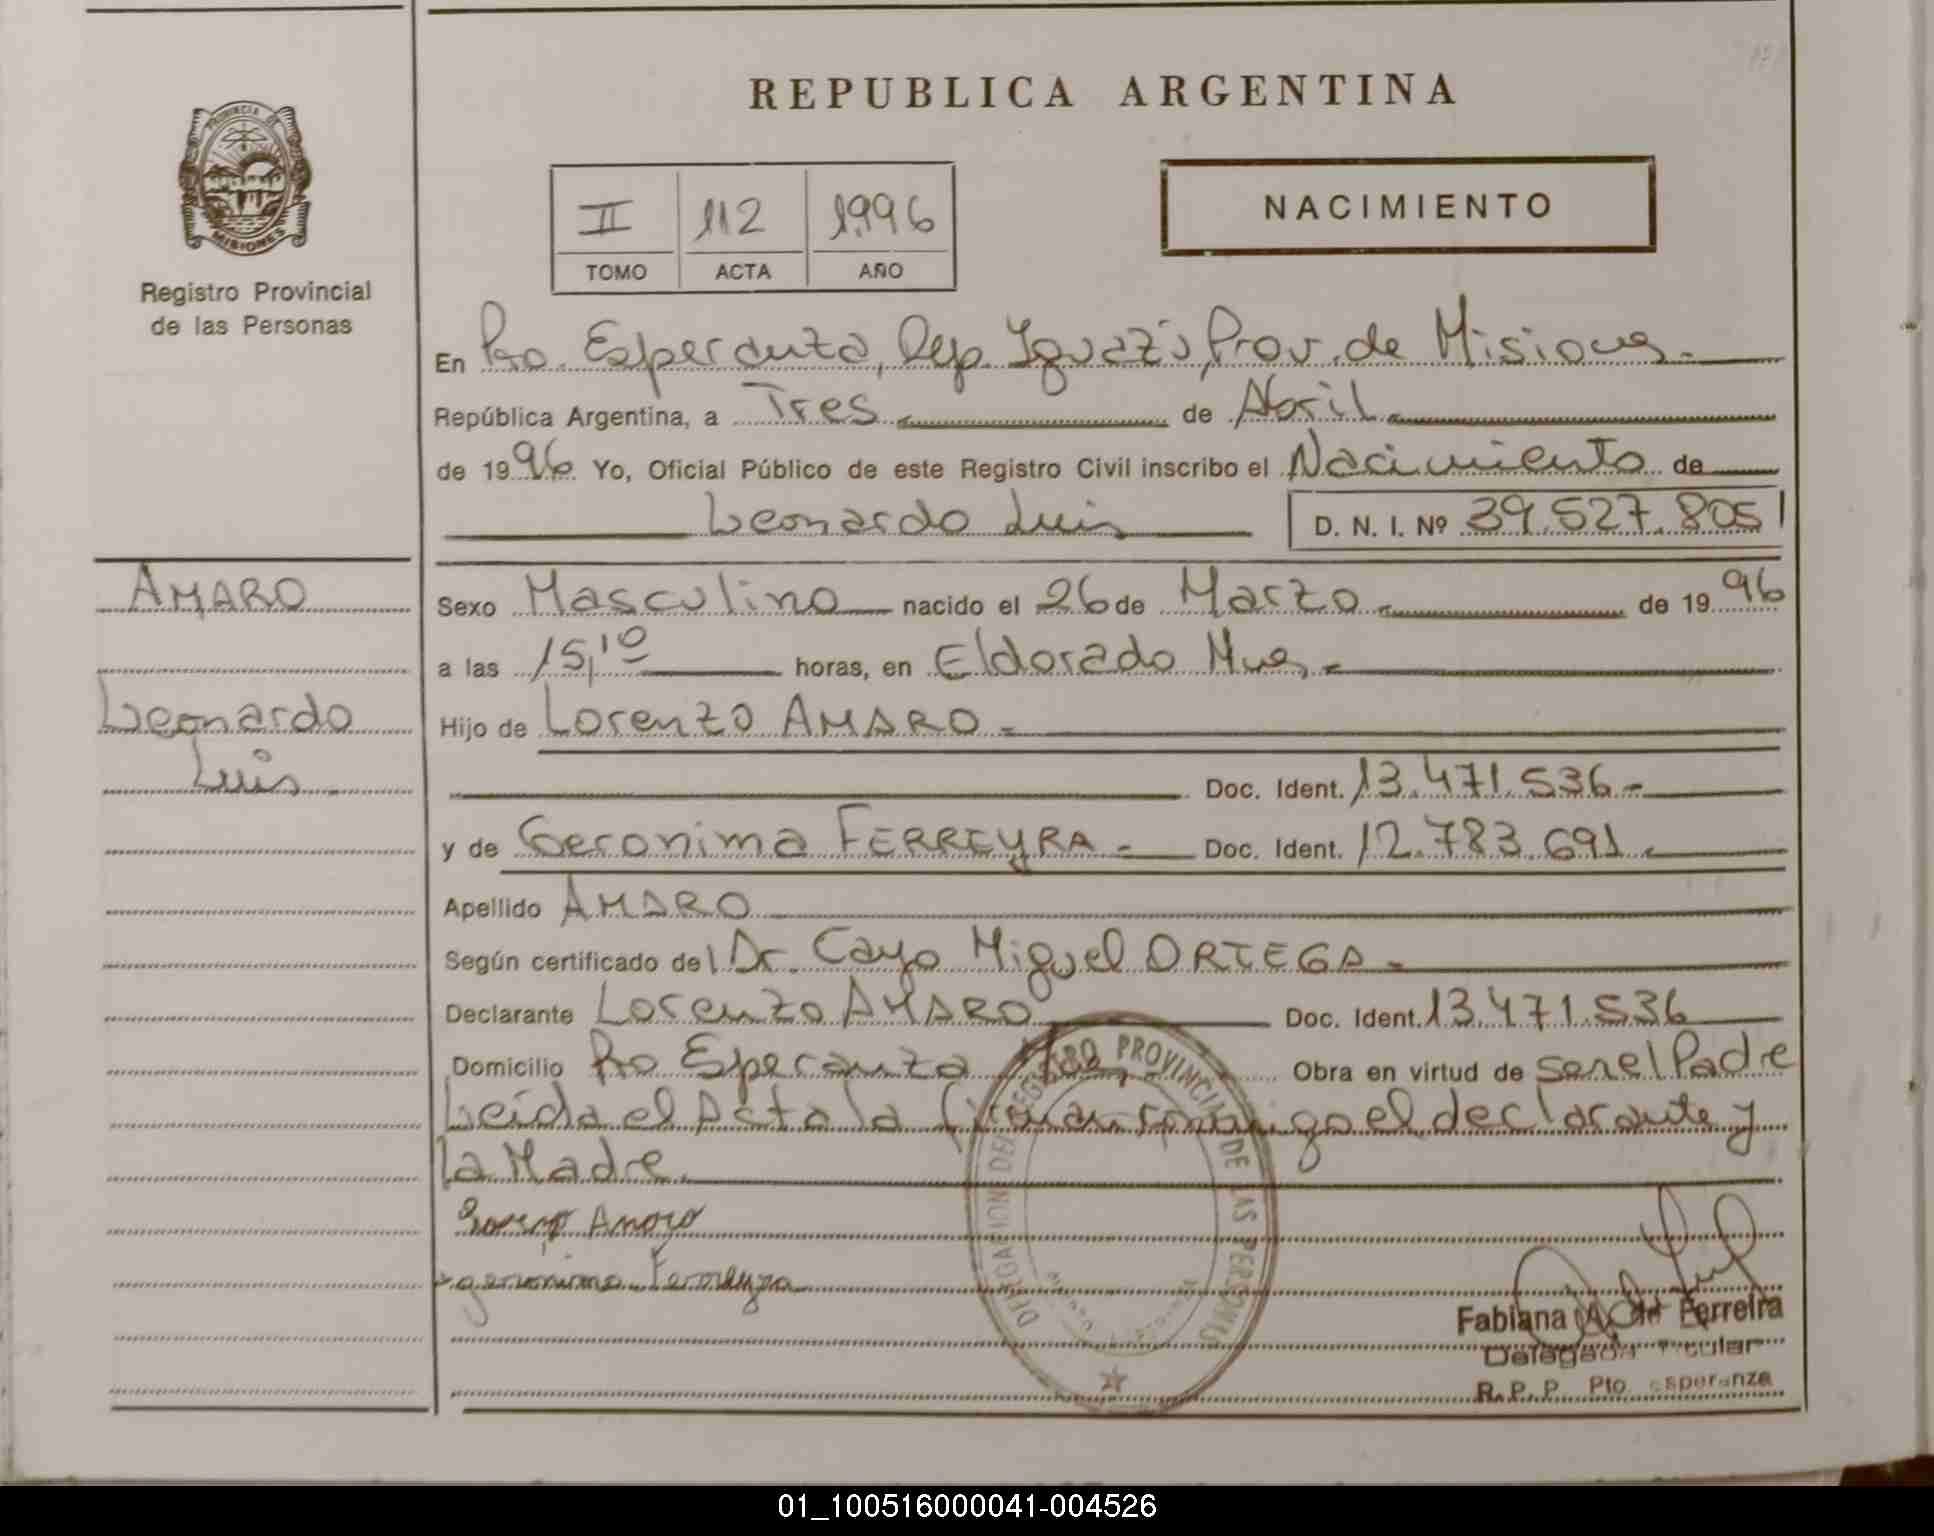 REPUBLICA ARGENTINA
PROVINCIA DE
MISIONES
Registro Provincial
de las Personas
II 112 1996
TOMO ACTA AÑO
NACIMIENTO
En Pto. Esperanza, Dep. Iguazú, Prov. de Misiones.-
República Argentina, a Tres.- de Abril.-
de 1996 Yo, Oficial Público de este Registro Civil inscribo el Nacimiento de
Leonardo Luis D. N. I. Nº 39.527.805
AMARO
Leonardo
Luis.-
Sexo Masculino nacido el 26 de Marzo.- de 1996
a las 15,10 horas, en Eldorado Mnes.-
Hijo de Lorenzo AMARO.-
Doc. Ident. 13.471.536.-
y de Geronima FERREYRA.- Doc. Ident. 12.783.691.-
Apellido AMARO
Según certificado del Dr. Cayo Miguel ORTEGA.-
Declarante Lorenzo AMARO Doc. Ident. 13.471.536
Domicilio Pto Esperanza Obra en virtud de ser el Padre
Leída el Acta la firman conmigo el declarante y
la Madre.
Amaro
geronima Ferreyra
DELEGACION DEL REGISTRO PROVINCIAL DE LAS PERSONAS
Fabiana A. de Ferreira
Delegada Titular
R. P. P. Pto. Esperanza
01_100516000041-004526